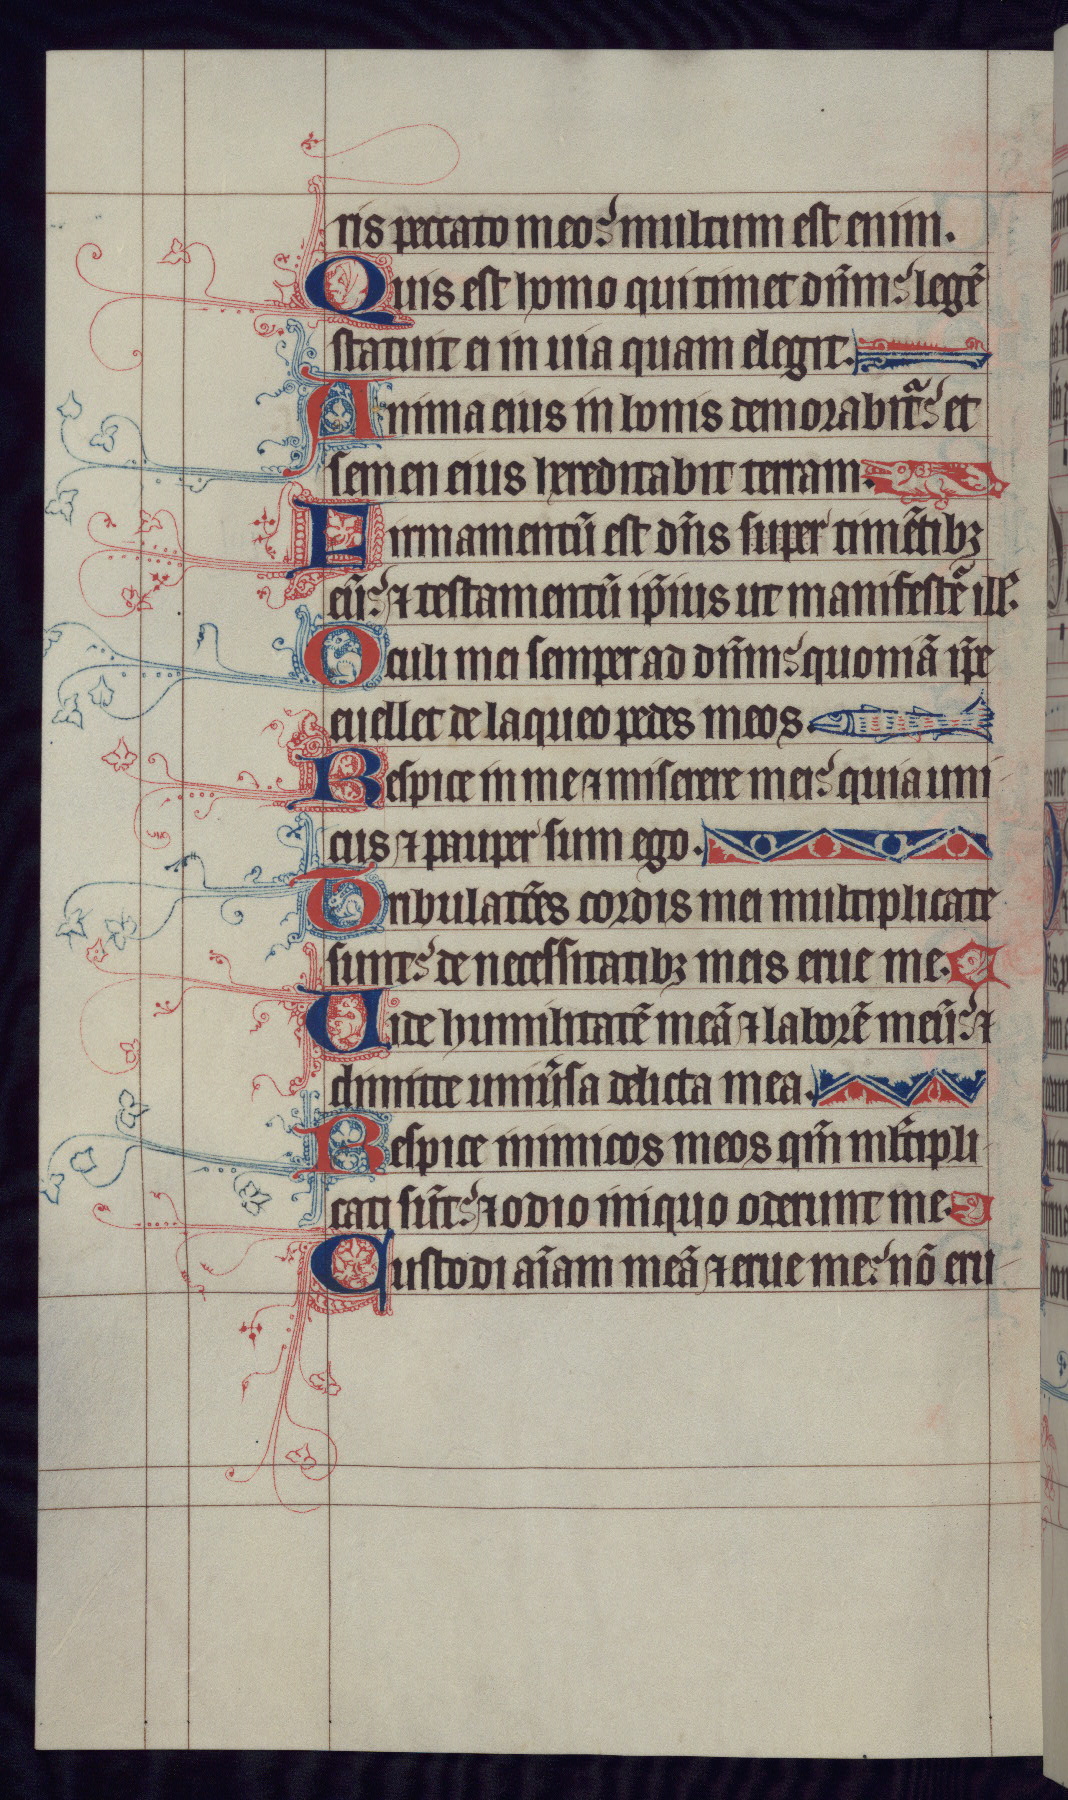 ris peccato meo: multum est enim.
Quis est homo qui timet dn̄m: legē
statuit ei in uia quam elegit.
Anima eius in bonis demorabit᷑: et
semen eius hereditabit terram.
Firmamentū est dn̄s super timētibꝫ
eū: ⁊ testamentū ip̄ius ut manifestēt̄ ill᷑.
Oculi mei semper ad dn̄m: quoniā ip̄e
euellet de laqueo pedes meos.
Respice in me ⁊ miserere mei: quia uni
cus ⁊ pauper sum ego.
Tribulatōes cordis mei multiplicate
sunt: de necessitatibꝫ meis erue me.
Uide humilitatē meā ⁊ laborē meū: ⁊
dimitte uniūsa delicta mea.
Respice inimicos meos qm̄ ml̄tipli
cati sūt: ⁊ odio iniquo oderunt me.
Custodi aīam meā ⁊ erue me: nō eru